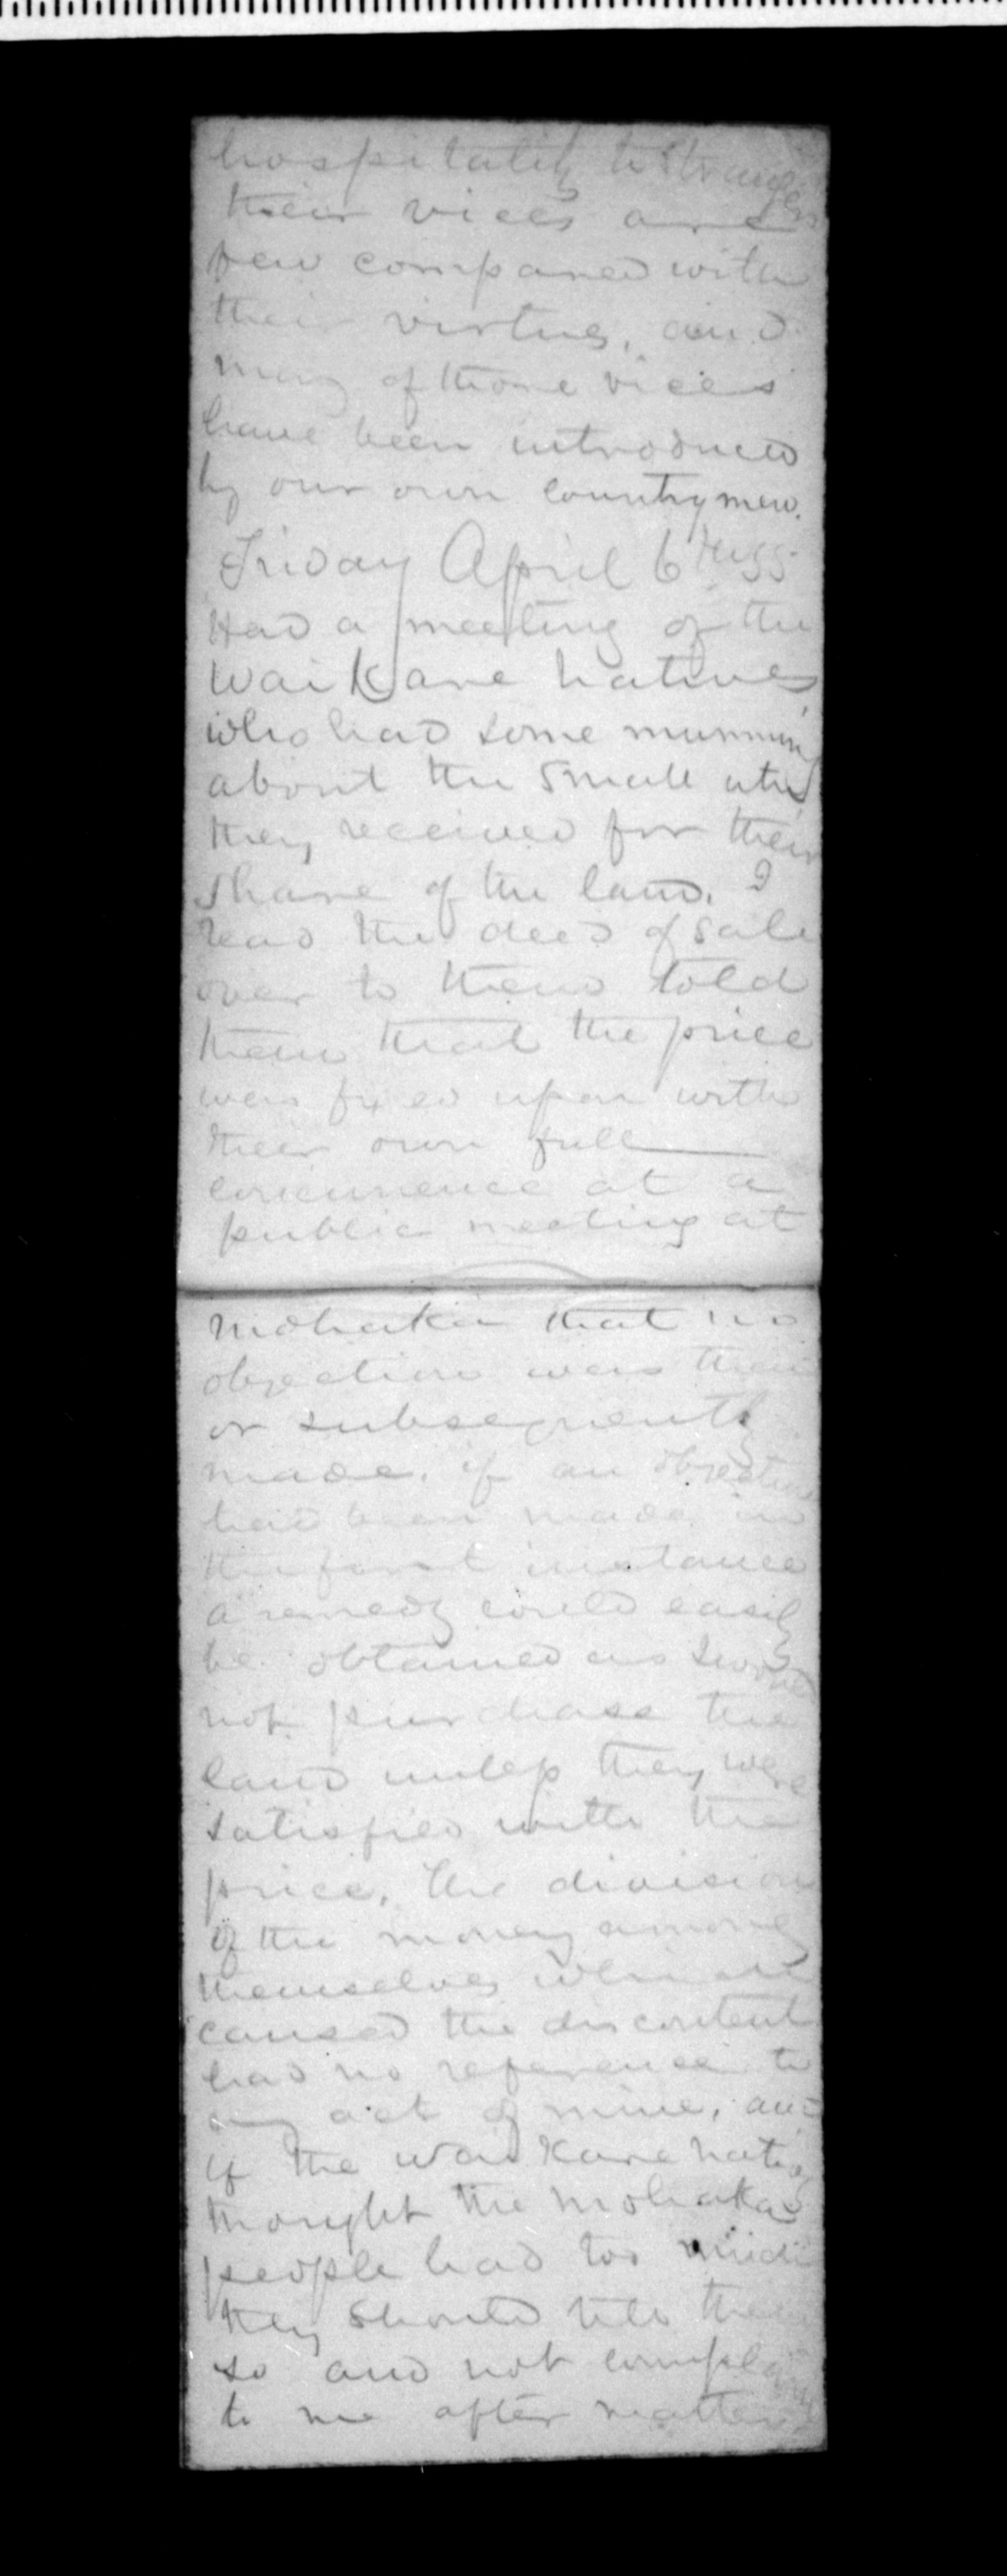 hospitality to Strangers
their vices are
few compared with
their virtues, and
many of those vices
have been introduced
by our own countrymen.
Friday April 6th/55
Had a meeting of the
Waikare natives
who had some murmuring
about the small utu
they received for their
share of the land. I
read the deed of sale
over to them told
them that the price
was fixed upon with
their own full
concurrence at a
public meeting at
Mohaka that no
objection was then
or subsequently
made. if an objection
had been made in
the first instance
a remedy could easily
be obtained as I would
not purchase the
land unless they were
satisfied with the
price. The division
of the money among
themselves which
caused the discontent
had no reference to
any act of mine, and
if the Waikare natives
thought the Mohaka
people had too much
they should tell them
so and not complain
to me after matters